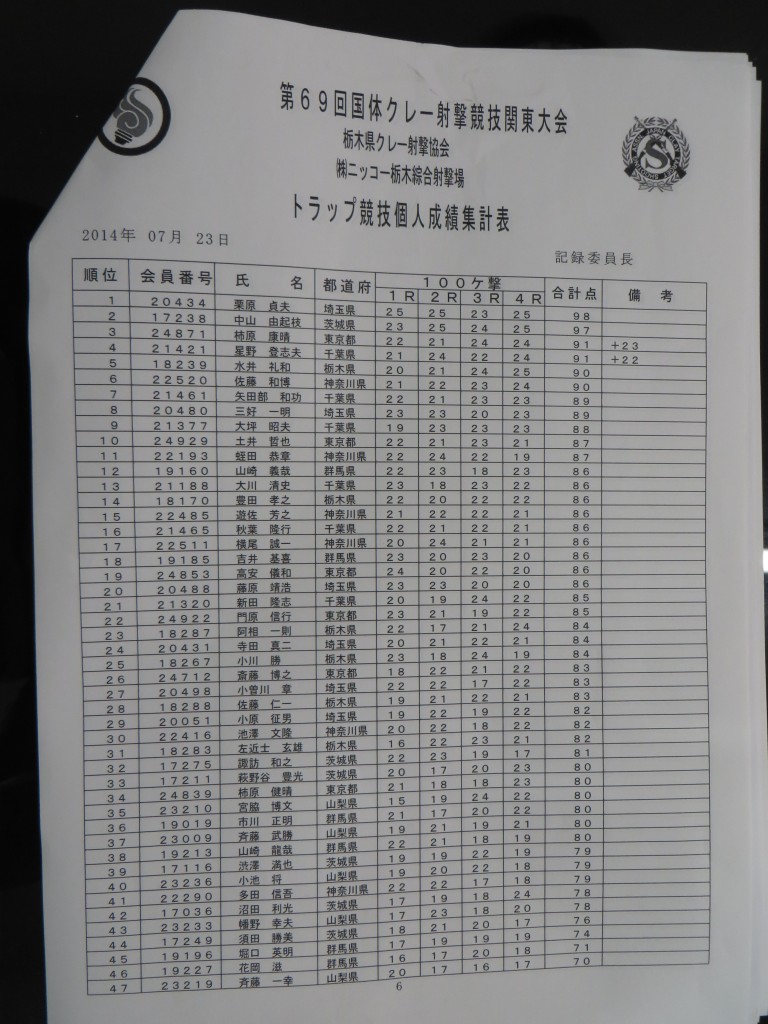 第69回国体クレー射撃競技関東大会
栃木県クレー射撃協会
㈱ニッコー栃木綜合射撃場
トラップ競技個人成績集計表
2014年 07月 23日
記録委員長
順位 会員番号 氏 名 都道府 100ケ撃 合計点 備考
1R 2R 3R 4R
1 20434 栗原 貞夫 埼玉県 25 25 23 25 98
2 17238 中山 由起枝 茨城県 23 25 24 25 97
3 24871 柿原 康晴 東京都 22 21 24 24 91 +23
4 21421 星野 登志夫 千葉県 21 24 22 24 91 +22
5 18239 水井 礼和 栃木県 20 21 24 25 90
6 22520 佐藤 和博 神奈川県 21 22 23 24 90
7 21461 矢田部 和功 千葉県 22 21 23 23 89
8 20480 三好 一明 埼玉県 23 23 20 23 89
9 21377 大坪 昭夫 千葉県 19 23 23 23 88
10 24929 土井 哲也 東京都 22 21 23 21 87
11 22193 蛭田 恭章 神奈川県 22 24 22 19 87
12 19160 山崎 義哉 群馬県 22 23 18 23 86
13 21188 大川 清史 千葉県 23 18 23 22 86
14 18170 豊田 孝之 栃木県 22 20 22 22 86
15 22485 遊佐 芳之 神奈川県 21 22 22 21 86
16 21465 秋葉 隆行 千葉県 22 21 22 21 86
17 22511 横尾 誠一 神奈川県 20 24 21 21 86
18 19185 吉井 基喜 群馬県 23 20 23 20 86
19 24853 高安 儀和 東京都 24 20 22 20 86
20 20488 藤原 靖浩 埼玉県 23 23 20 20 86
21 21320 新田 隆志 千葉県 20 19 24 22 85
22 24922 門原 信行 東京都 23 21 19 22 85
23 18287 阿相 一則 栃木県 22 17 21 24 84
24 20431 寺田 真二 埼玉県 20 21 22 21 84
25 18267 小川 勝 栃木県 23 18 24 19 84
26 24712 斎藤 博之 東京都 18 22 21 22 83
27 20498 小曽川 章 埼玉県 22 22 17 22 83
28 18288 佐藤 仁一 栃木県 19 21 22 21 83
29 20051 小原 征男 埼玉県 19 22 19 22 82
30 22416 池澤 文隆 神奈川県 20 22 18 22 82
31 18283 左近士 玄雄 栃木県 16 22 23 21 82
32 17275 諏訪 和之 茨城県 22 23 19 17 81
33 17211 萩野谷 豊光 茨城県 20 17 20 23 80
34 24839 柿原 健晴 東京都 21 18 18 23 80
35 23210 宮脇 博文 山梨県 15 19 24 22 80
36 19019 市川 正明 群馬県 21 17 20 22 80
37 23009 斉藤 武勝 山梨県 19 21 19 21 80
38 19213 山崎 龍哉 群馬県 22 21 18 19 80
39 17116 渋澤 満也 茨城県 19 19 22 19 79
40 23236 小池 将 山梨県 19 20 22 18 79
41 22290 多田 信吾 神奈川県 22 22 17 18 79
42 17036 沼田 利光 茨城県 17 19 18 24 78
43 23233 幡野 幸夫 山梨県 17 23 18 20 78
44 17249 須田 勝美 茨城県 18 21 20 17 76
45 19196 堀口 英明 群馬県 17 19 19 19 74
46 19227 花岡 滋 群馬県 16 17 20 18 71
47 23219 斉藤 一幸 山梨県 20 17 16 17 70
6